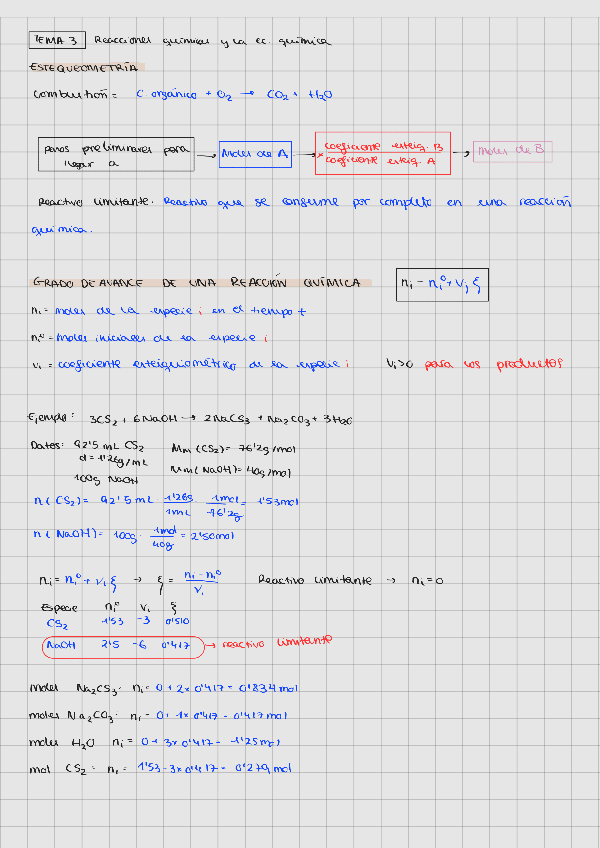 TEMA 3 Reacciones químicas y la ec. química
ESTEQUEOMETRÍA
Combustión = C orgánico + O₂ → CO₂ + H₂O
pasos preliminares para llegar a → Moles de A → × coeficiente esteiq. B / coeficiente esteiq. A → moles de B
Reactivo limitante. Reactivo que se consume por completo en una reacción
química.
GRADO DE AVANCE DE UNA REACCIÓN QUÍMICA nᵢ = nᵢ⁰ + νᵢ ξ
nᵢ = moles de la especie i en el tiempo t
nᵢ⁰ = moles iniciales de la especie i
νᵢ = coeficiente esteiquiométrico de la especie i νᵢ>0 para los productos
Ejemplo: 3CS₂ + 6NaOH → 2NaCS₃ + Na₂CO₃ + 3H₂O
Datos: 92'5 mL CS₂ Mm (CS₂) = 76'2g/mol
d = 1'26g/mL Mm (NaOH) = 40g/mol
100g NaOH
n(CS₂) = 92'5 mL · 1'26g/1mL · 1mol/76'2g = 1'53mol
n(NaOH) = 100g · 1mol/40g = 2'50mol
nᵢ = nᵢ⁰ + νᵢ ξ → ξ = nᵢ - nᵢ⁰/νᵢ Reactivo limitante → nᵢ = 0
Especie nᵢ⁰ νᵢ ξ
CS₂ 1'53 -3 0'510
NaOH 2'5 -6 0'417 → reactivo limitante
moles Na₂CS₃ · nᵢ = 0 + 2 × 0'417 = 0'834 mol
moles Na₂CO₃ · nᵢ = 0 + 1 × 0'417 = 0'417 mol
moles H₂O nᵢ = 0 + 3 × 0'417 = 1'25mol
mol CS₂ = nᵢ = 1'53 - 3 × 0'417 = 0'279 mol